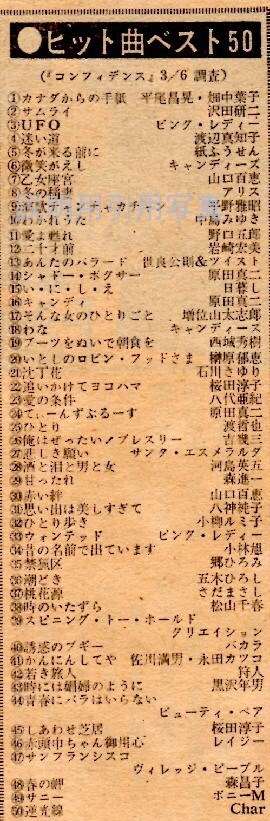 ●ヒット曲ベスト50
(『コンフィデンス』3/6 調査)
①カナダからの手紙 平尾昌晃・畑中葉子
②サムライ 沢田研二
③UFO ピンク・レディー
④迷い道 渡辺真知子
⑤冬が来る前に 紙ふうせん
⑥微笑がえし キャンディーズ
⑦乙女座宮 山口百恵
⑧冬の稲妻 アリス
⑨ ・カチューシャ 星野雅昭
⑩わかれうた 中島みゆき
⑪愛よ甦れ 野口五郎
⑫二十才前 岩崎宏美
⑬あんたのバラード 世良公則&ツイスト
⑭シャドー・ボクサー 原田真二
⑮い・に・し・え 日暮し
⑯キャンディ 原田真二
⑰そんな女のひとりごと 増位山太志郎
⑱わな キャンディーズ
⑲ブーツをぬいで朝食を 西城秀樹
⑳いとしのロビン・フッドさま 榊原郁恵
㉑沈丁花 石川さゆり
㉒追いかけてヨコハマ 桜田淳子
㉓愛の条件 八代亜紀
㉔てぃーんずぶるーす 原田真二
㉕ひとり 渡哲也
㉖俺はぜったい!プレスリー 吉幾三
㉗悲しき願い サンタ・エスメラルダ
㉘酒と泪と男と女 河島英五
㉙甘ったれ 森進一
㉚赤い絆 山口百恵
㉛思い出は美しすぎて 八神純子
㉜ひとり歩き 小柳ルミ子
㉝ウォンテッド ピンク・レディー
㉞昔の名前で出ています 小林旭
㉟禁猟区 郷ひろみ
㊱潮どき 五木ひろし
㊲桃花源 さだまさし
㊳時のいたずら 松山千春
㊴スピニング・トー・ホールド
クリエイション
㊵誘惑のブギー バカラ
㊶かんにんしてや 佐川満男・永田カツコ
㊷若き旅人 狩人
㊸時には娼婦のように 黒沢年男
㊹青春にバラはいらない
ビューティ・ペア
㊺しあわせ芝居 桜田淳子
㊻赤頭巾ちゃん御用心 レイジー
㊼サンフランシスコ
ヴィレッジ・ピープル
㊽春の岬 森昌子
㊾サニー ボニーM
㊿逆光線 Char